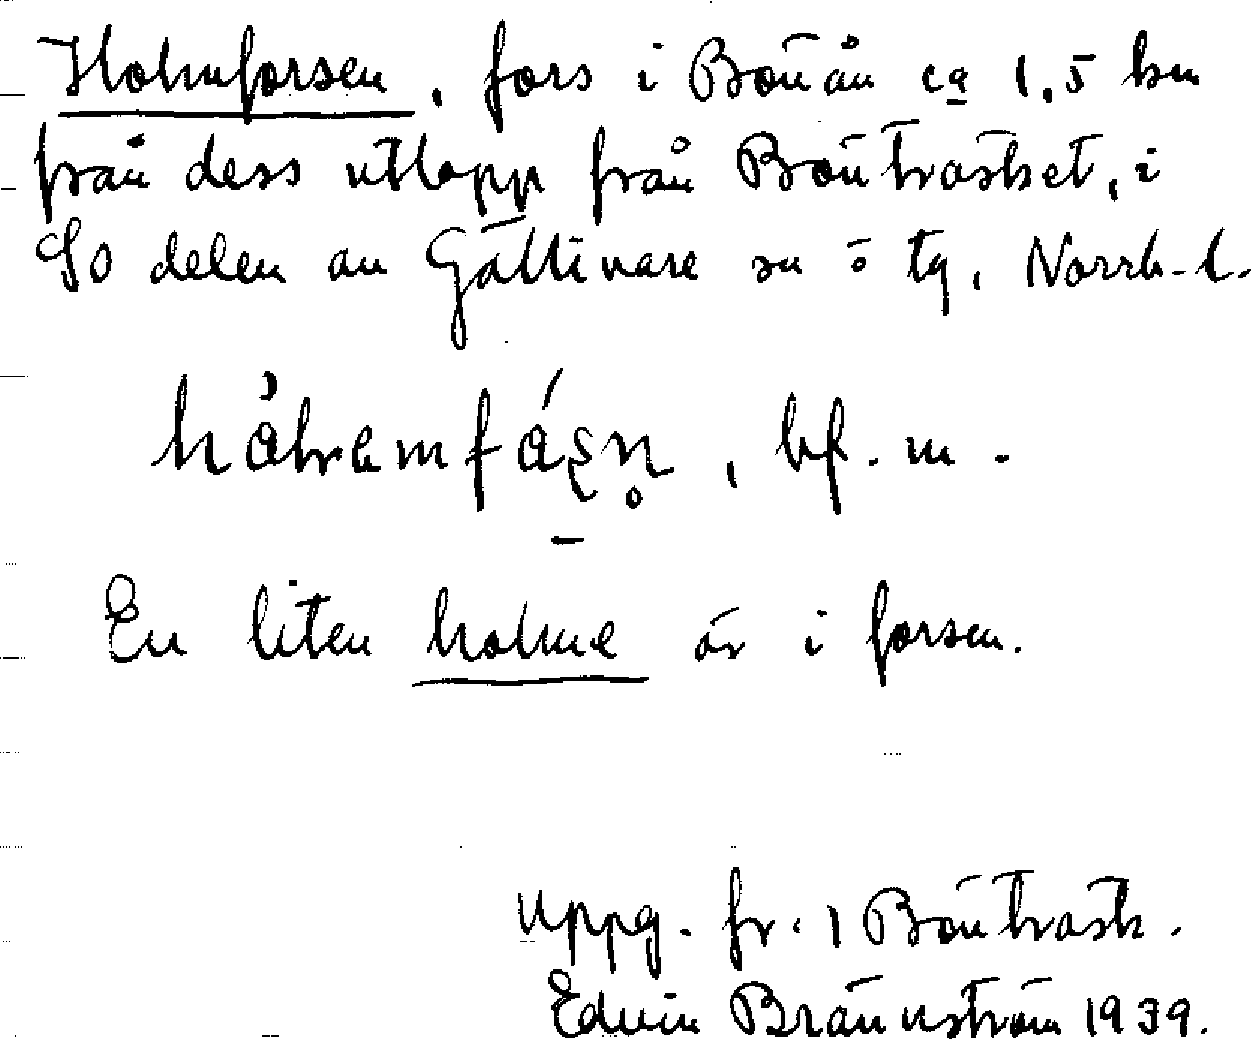 Holmforsen, fors i Bönån ca 1,5 km
från dess utlopp från Bönträsket, i
SO delen av Gällivare sn o tg, Norrb. l.
bf. m.
En liten holme är i forsen.
Uppg. fr. 1 Bönträsk.
Edvin Brännström 1939.